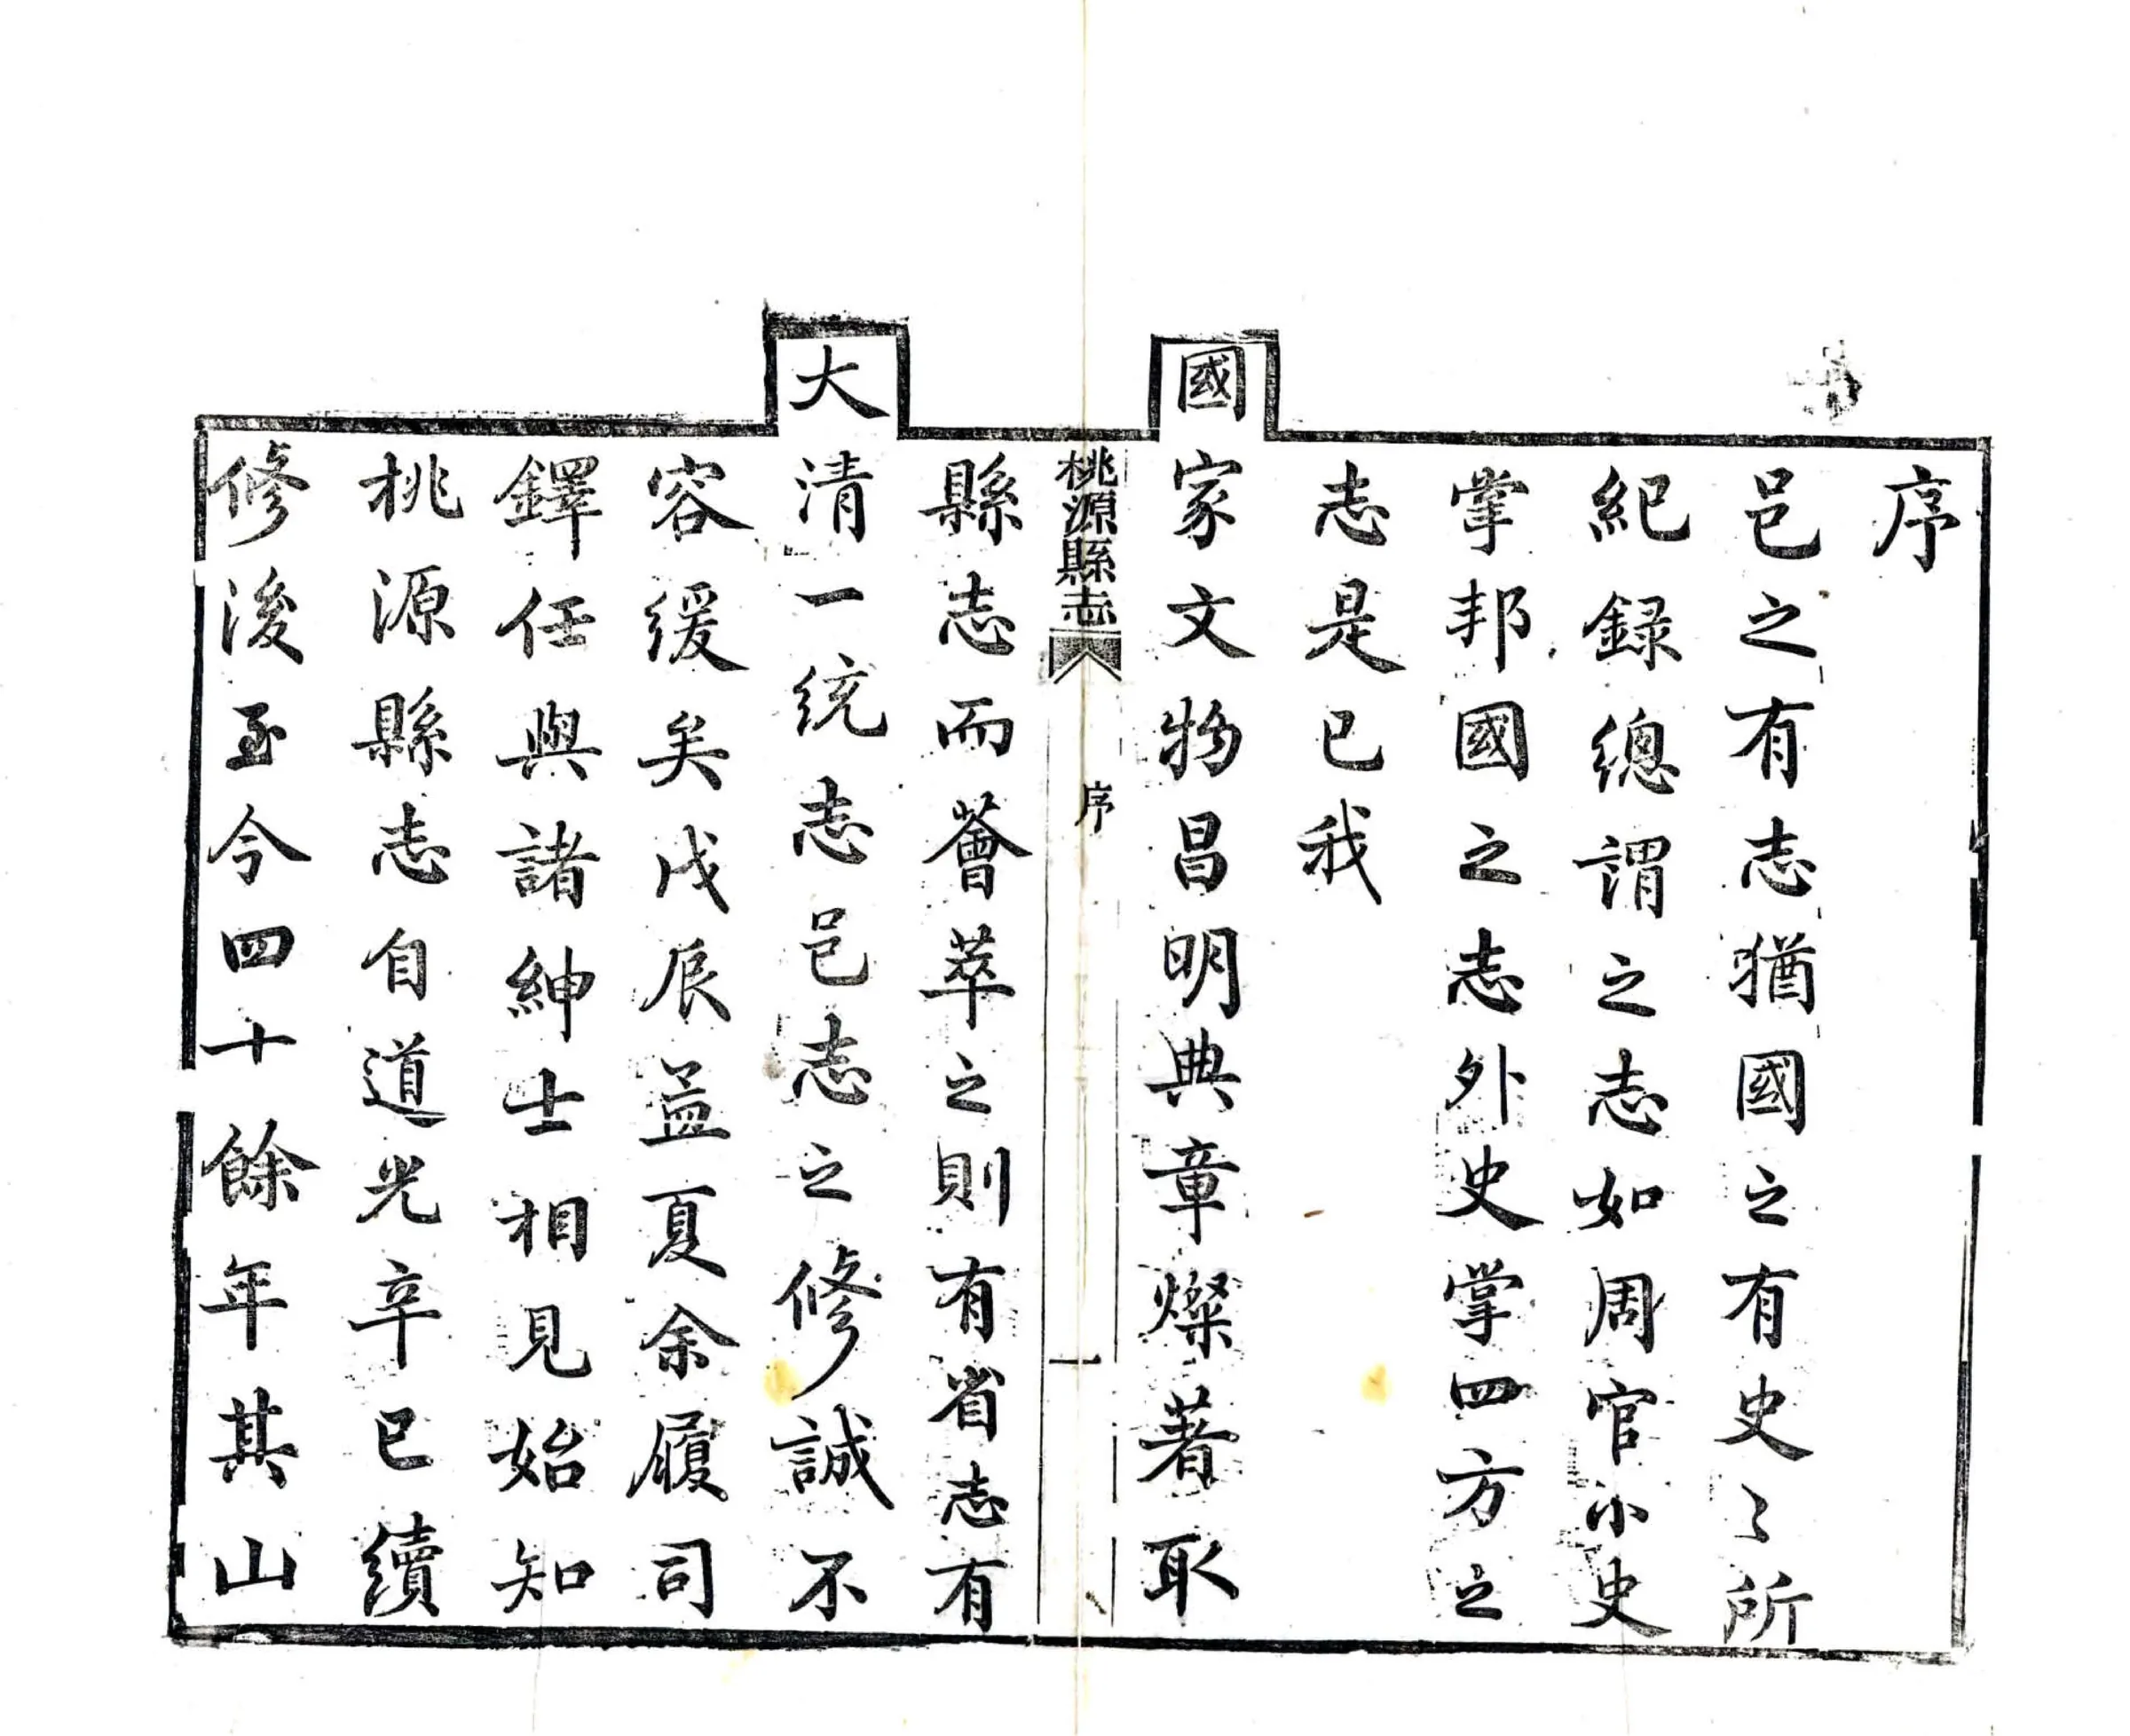 序
邑之有志猶國之有史〻所
紀録總謂之志如周官小史
掌邦國之志外史掌四方之
志是已我
國家文物昌明典章燦著取
桃源縣志 序 一
縣志而薈萃之則有省志有
大清一統志邑志之修誠不
容緩矣戊辰孟夏余履司
鐸任與諸紳士相見始知
桃源縣志自道光辛巳續
修後至今四十餘年其山